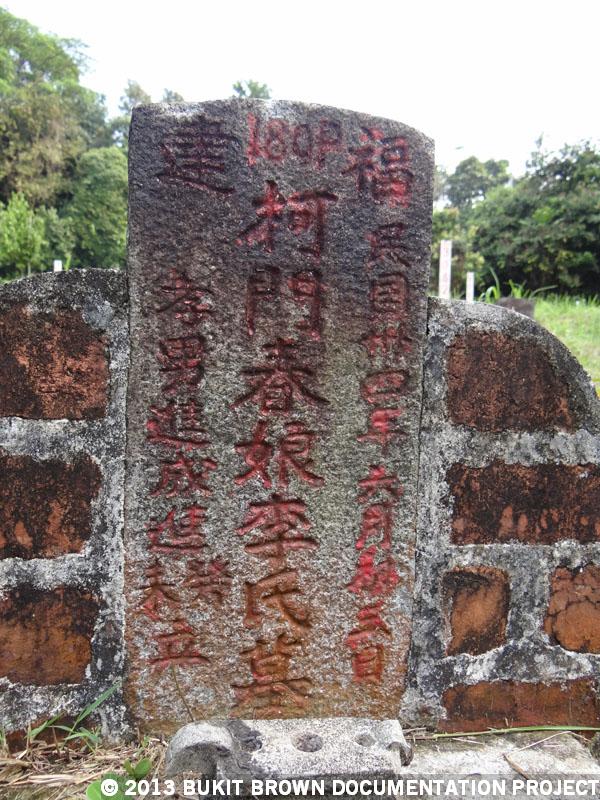 福
民國卅四年六月初三日
180P
柯門春娘李氏墓
建
孝男進成進立
© 2013 BUKIT BROWN DOCUMENTATION PROJECT